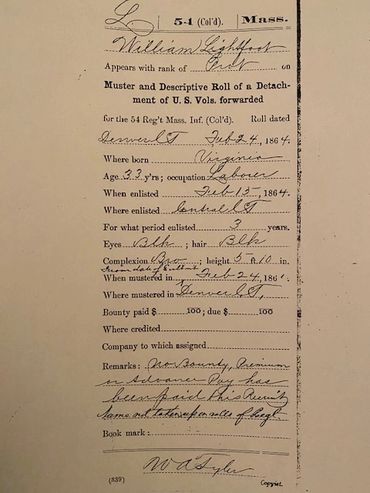 L | 54 (Col'd). | Mass.
William Lightfoot
Appears with rank of Pvt on
Muster and Descriptive Roll of a Detach-
ment of U. S. Vols. forwarded
for the 54 Reg't Mass. Inf. (Col'd). Roll dated
Denver C T Feb 24, 1864.
Where born Virginia
Age 33 y'rs; occupation Laborer
When enlisted Feb 15, 1864.
Where enlisted Central C T
For what period enlisted 3 years.
Eyes Blk; hair Blk
Complexion Bro; height 5 ft 10 in.
from date of Enlistment
When mustered in Feb 24, 186 .
Where mustered in Denver C T,
Bounty paid $ 100; due $ 100
Where credited
Company to which assigned
Remarks: No Bounty, Premium
or Advance Pay has
been paid this Recruit
Name not taken up on rolls of Regt
Book mark:
W A Tyler
(339) Copyist.